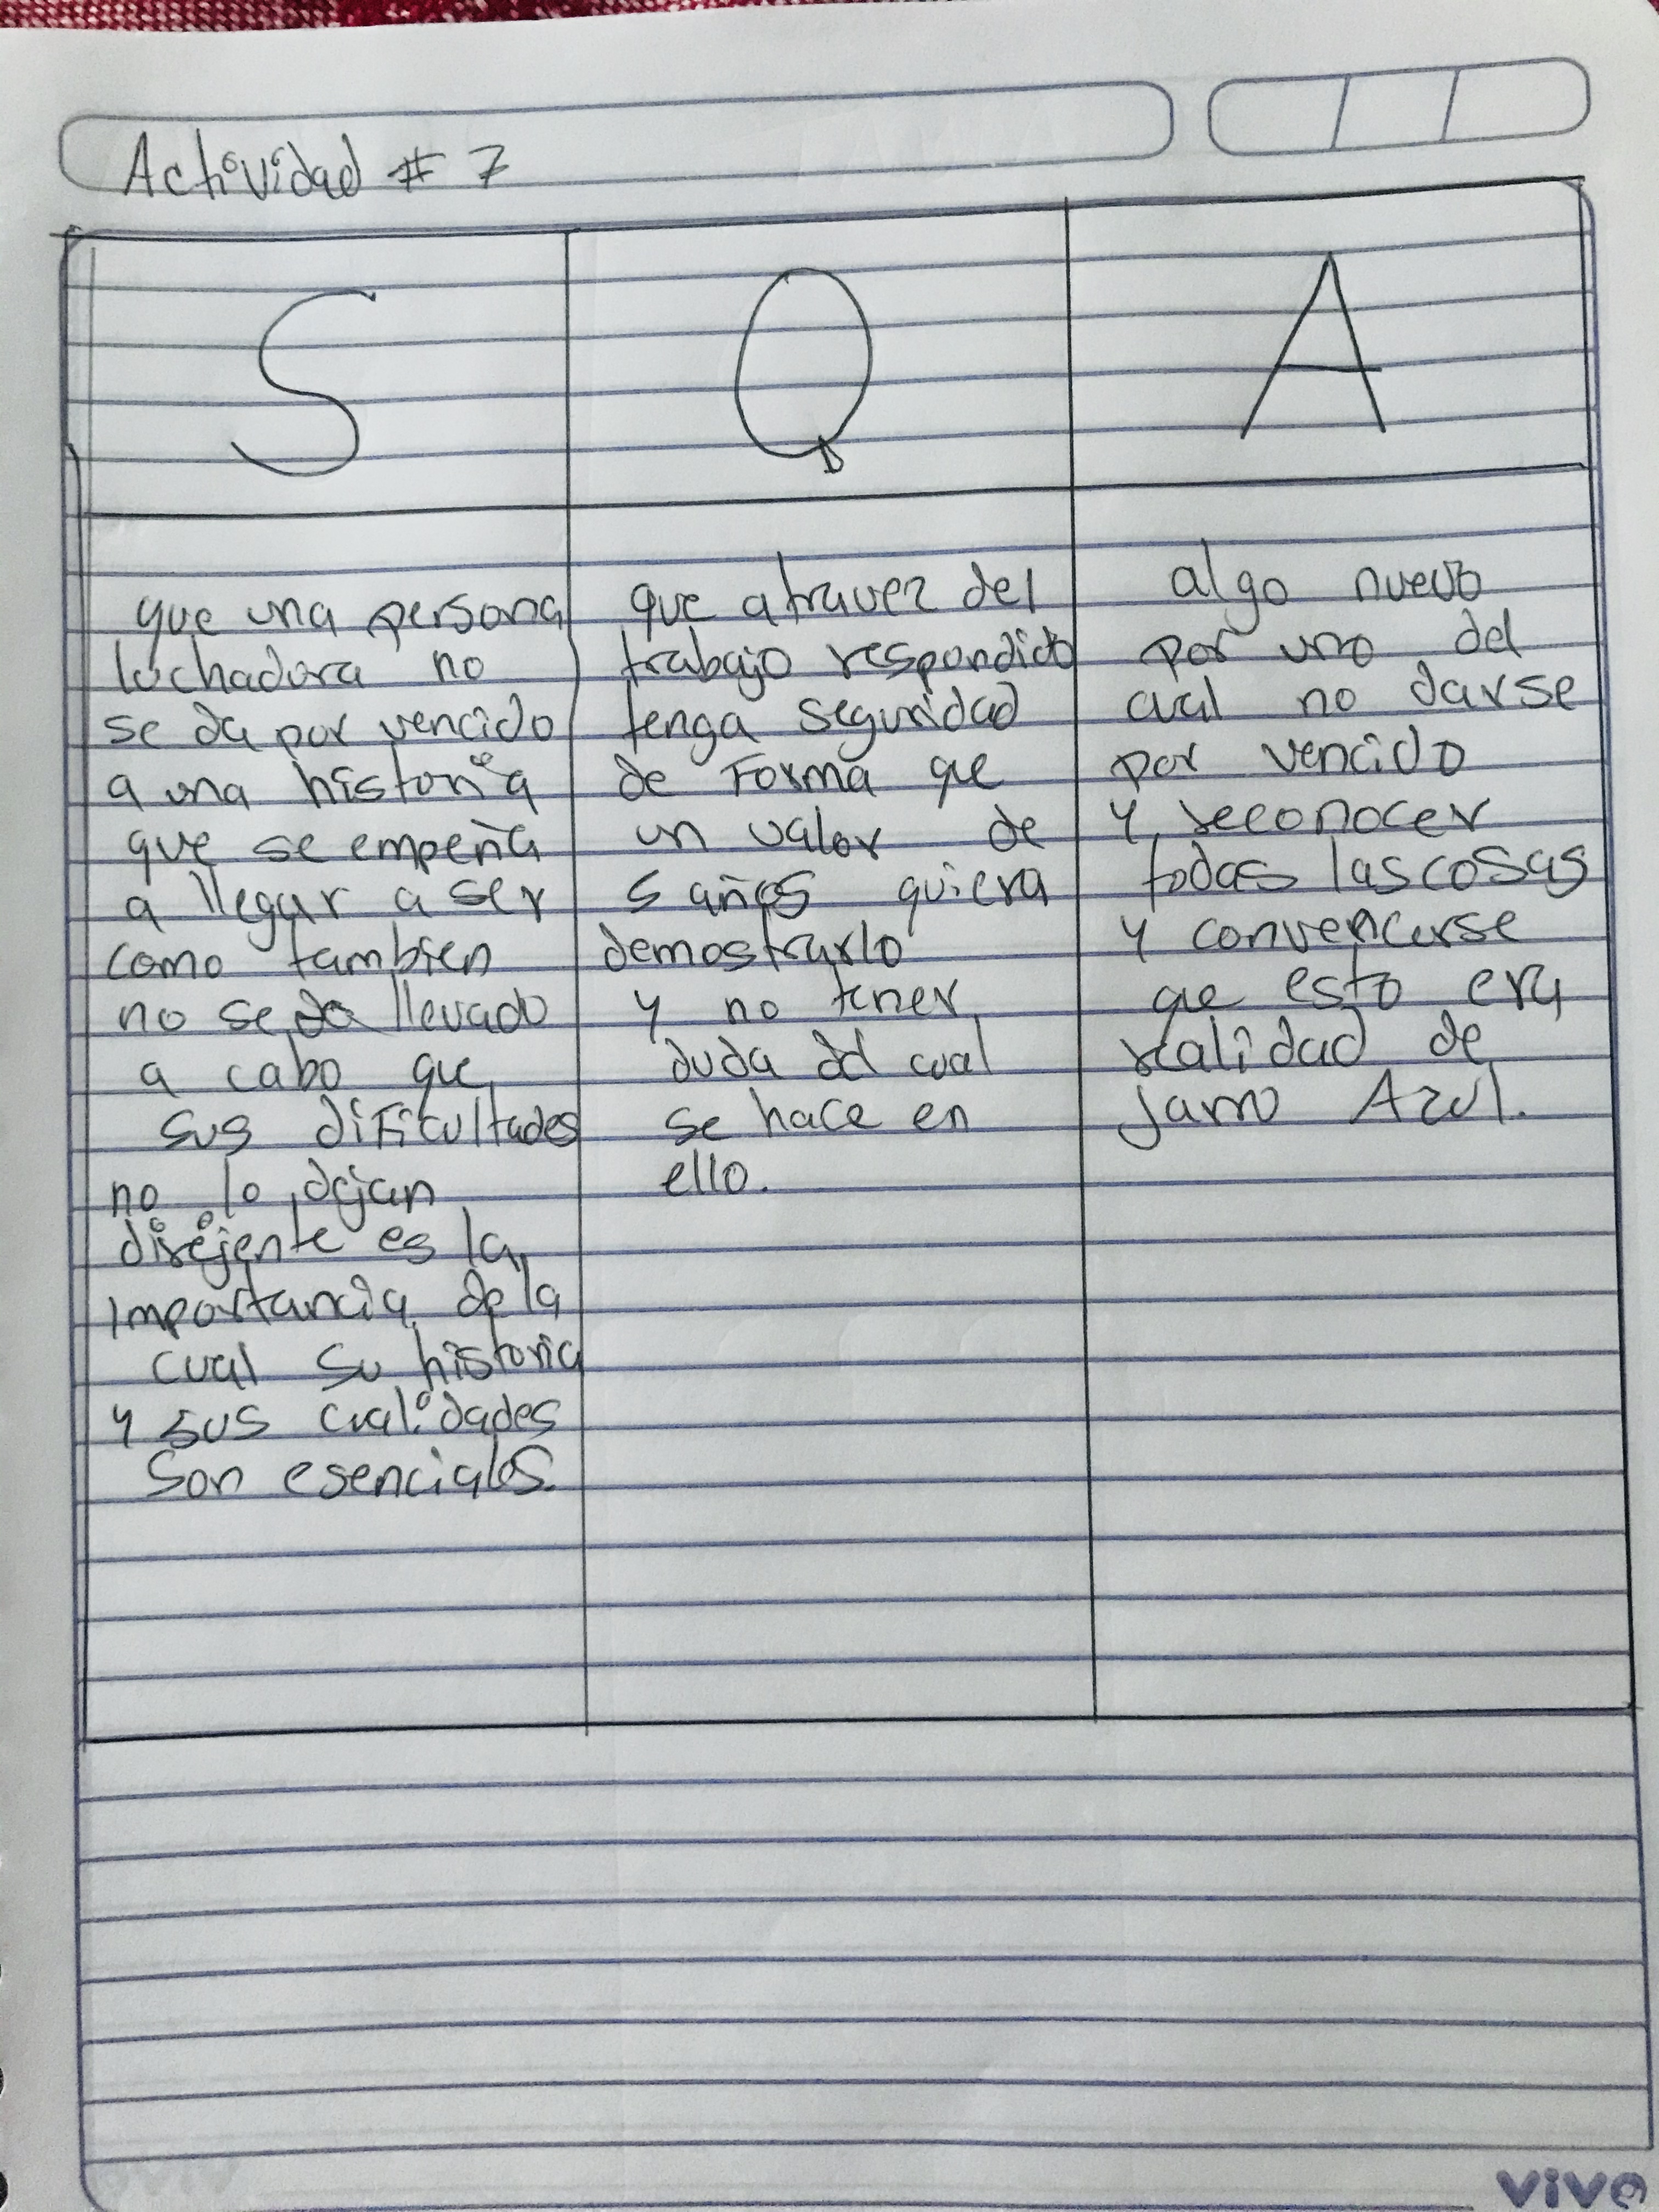 Actividad # 7
S
Q
A
que una persona
luchadora no
se da por vencido
a una historia
que se empeña
a llegar a ser
como tambien
no se da llevado
a cabo que
sus dificultades
no lo dejan
direjente es la
importancia de la
cual su historia
y sus cualidades
son esenciales.
que atravez del
trabajo respondido
tenga seguridad
de Forma que
un valor de
5 años quiera
demostrarlo
y no tener
duda del cual
se hace en
ello.
algo nuevo
por uno del
cual no darse
por vencido
y reconocer
todas las cosas
y convencerse
que esto era
realidad de
jarro Azul.
vivo